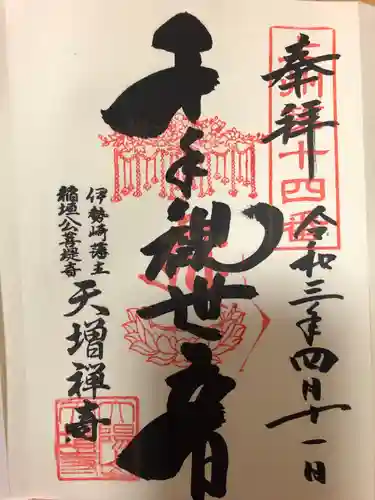 奉拝
令和三年四月十一日
千手観世音
伊勢崎藩主
稲垣公菩提寺
天増禅寺
十四番